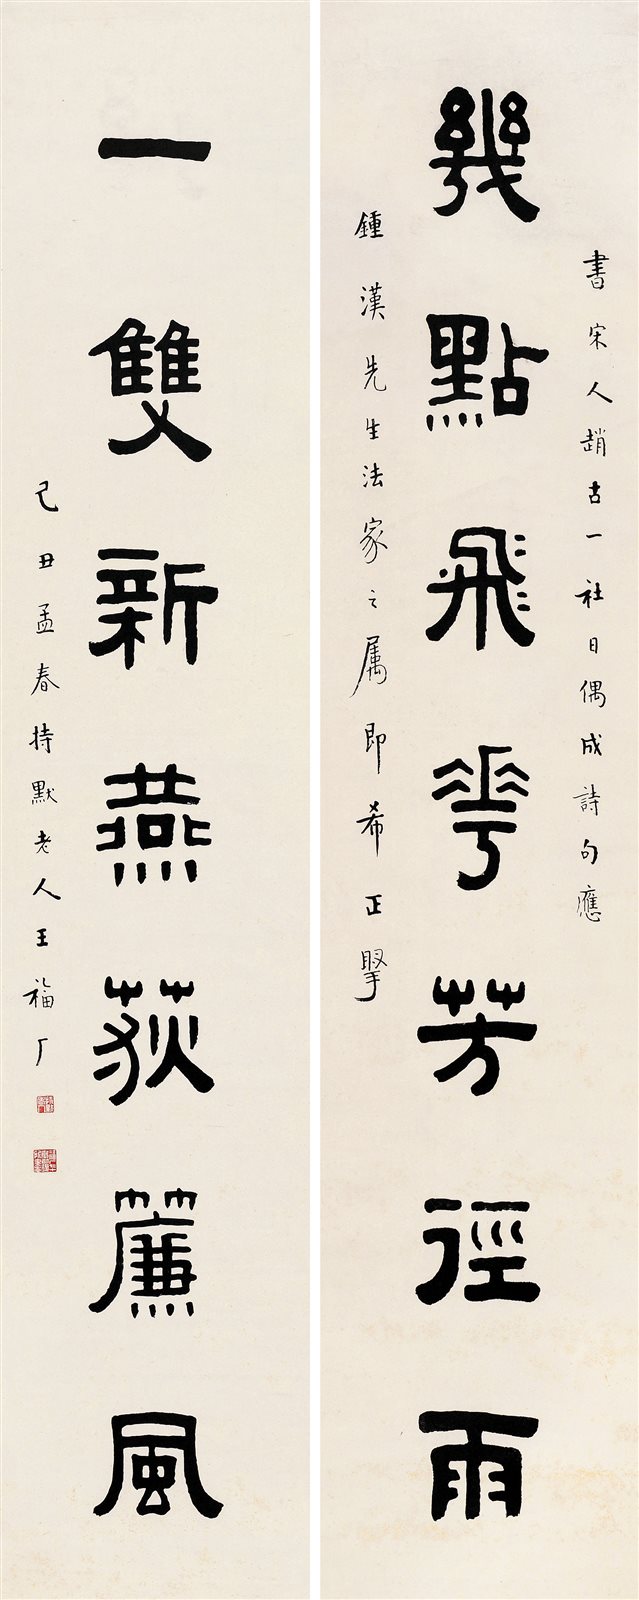 幾點飛花芳徑雨
書宋人趙古一社日偶成詩句應
鍾漢先生法家之属即希正擥
一雙新燕荻簾風
己丑孟春持默老人王福厂